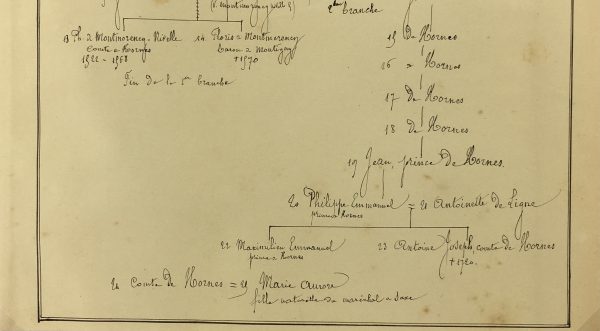 (v. montmorency
2de branche
13 Ph. de Montmorency-Nivelle
Comte de Hornes
1522-1568
14 Floris de Montmorency
baron de Montigny
†1570
Fin de la 1re branche
15 de Hornes
16 de Hornes
17 de Hornes
18 de Hornes
19 Jean, prince de Hornes.
20 Philippe Emmanuel = 21 Antoinette de Ligne
prince de Hornes
22 Maximilien Emmanuel
prince de Hornes
23 Antoine Joseph comte de Hornes
†1720.
24 Comte de Hornes = 25 Marie Aurore
fille naturelle du maréchal de Saxe